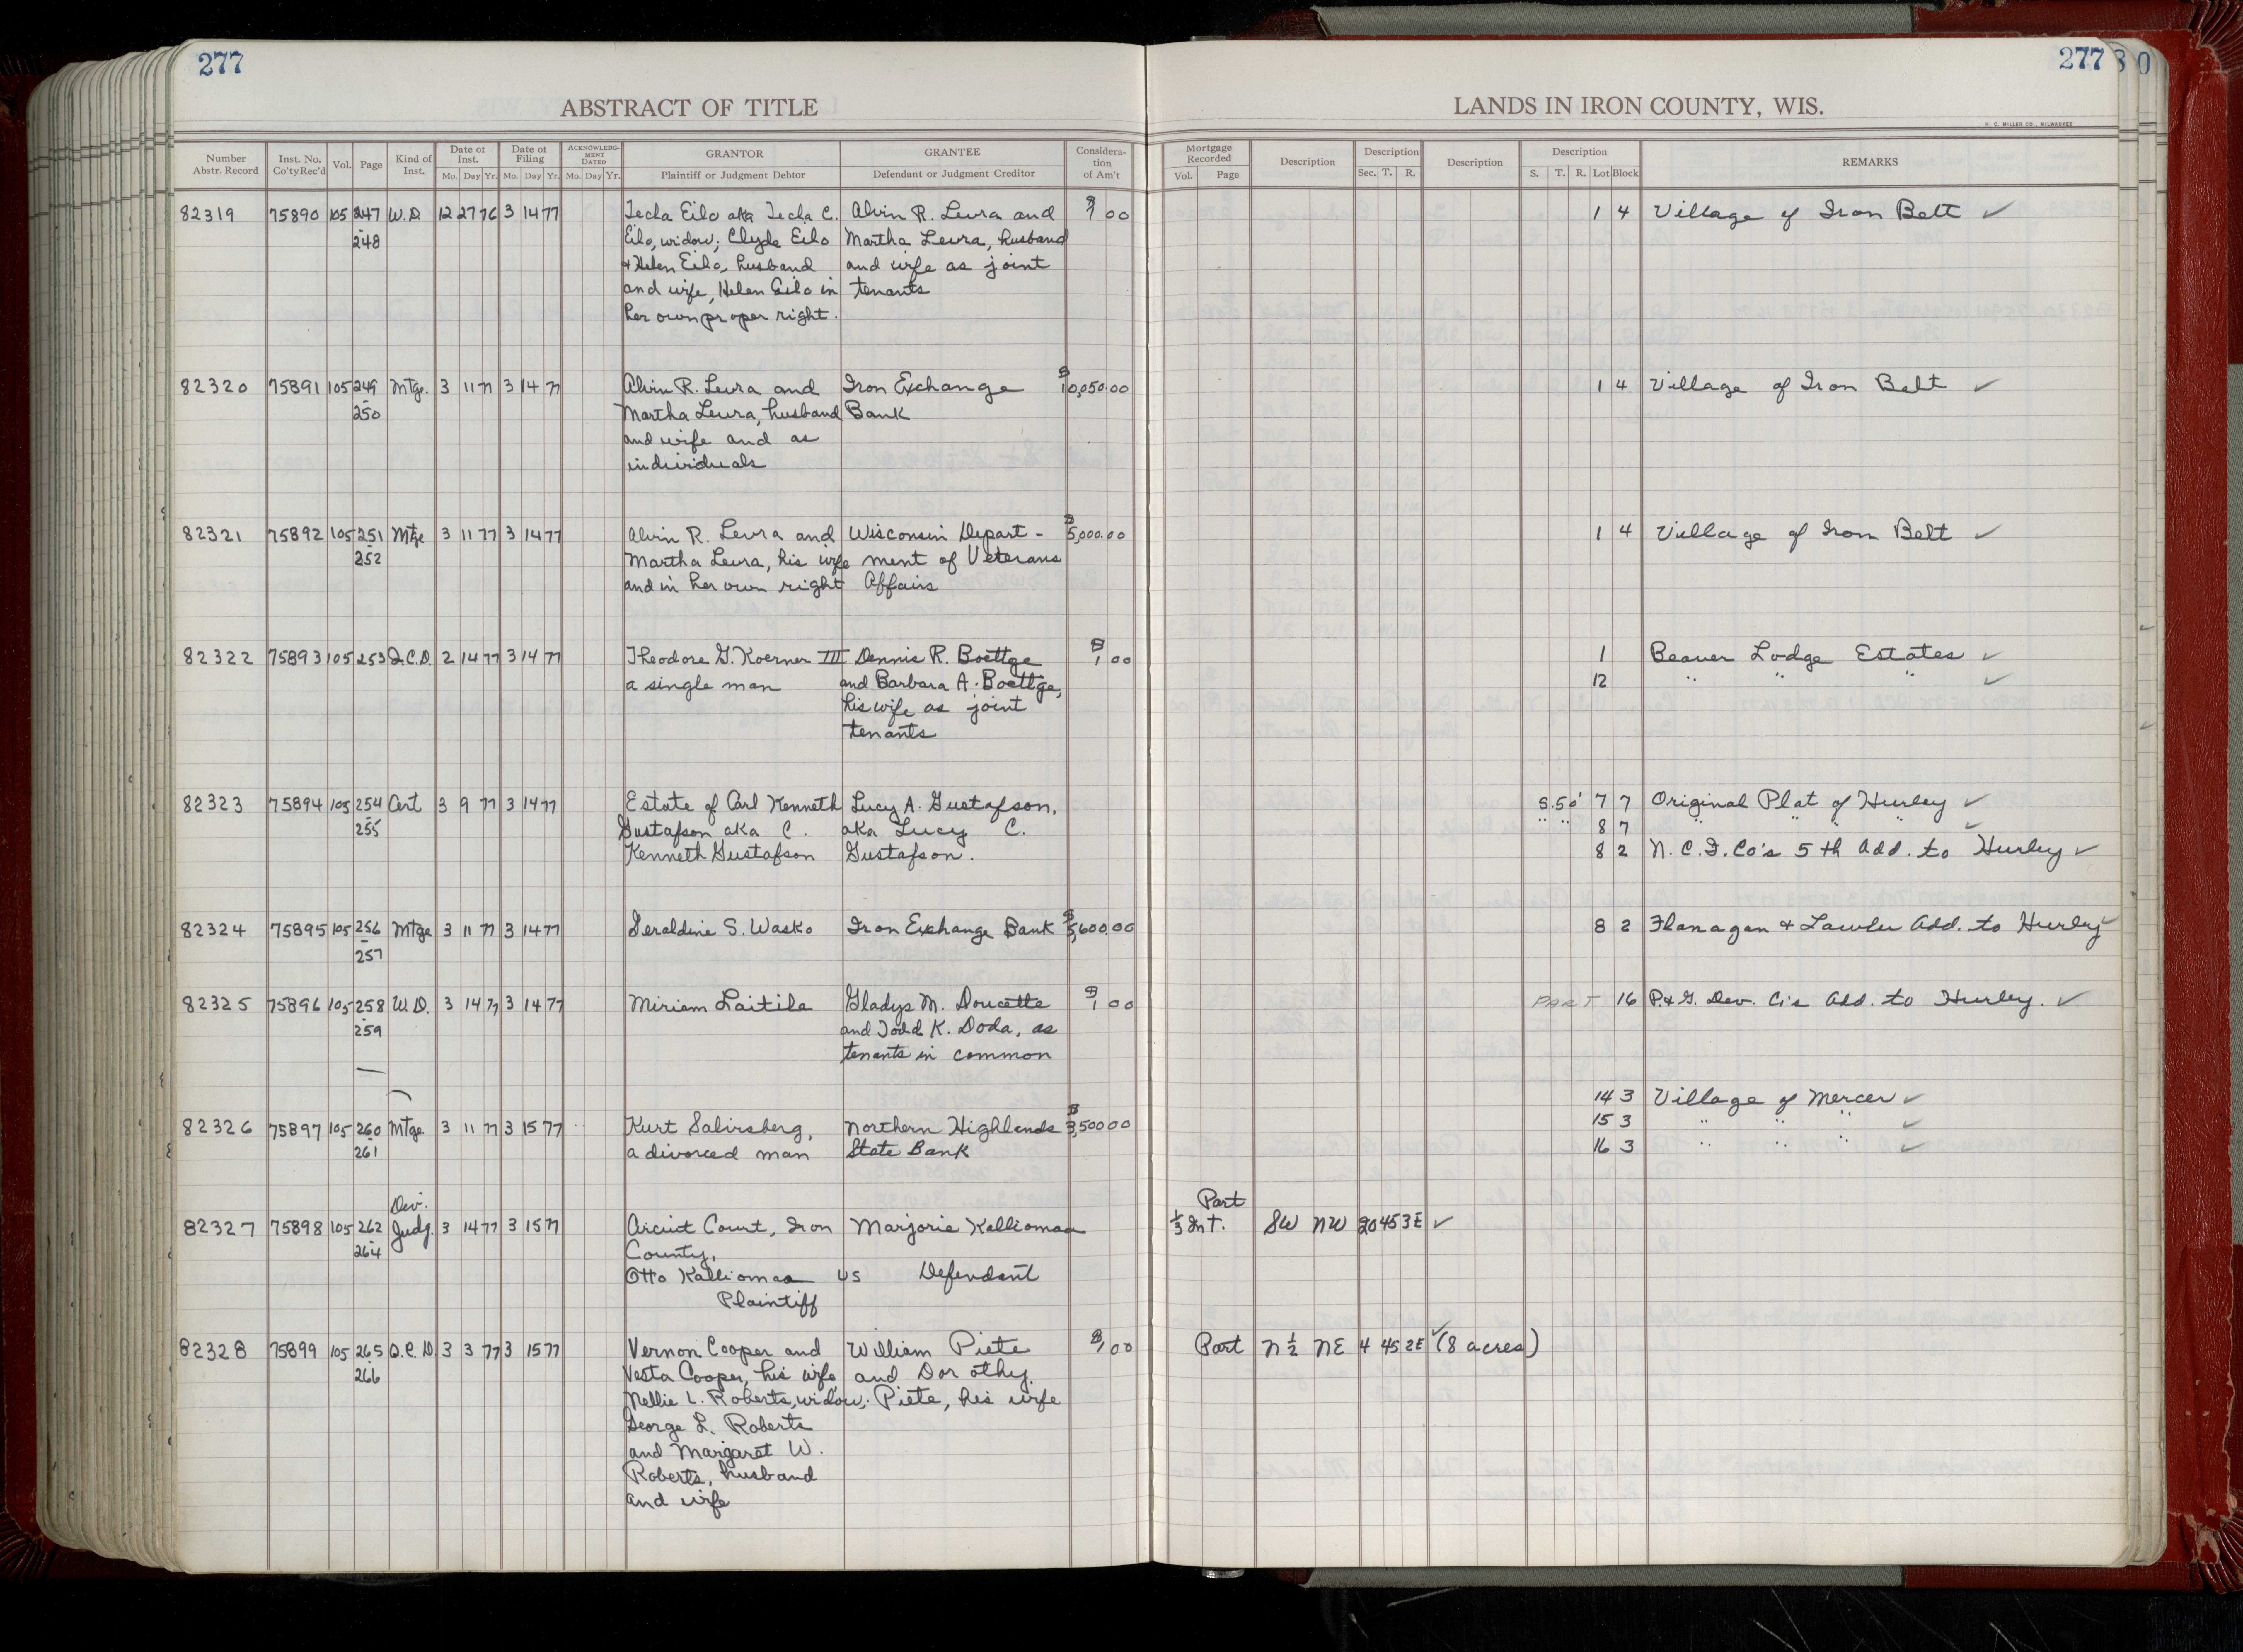 277
277
30
ABSTRACT OF TITLE
LANDS IN IRON COUNTY, WIS.
H. C. MILLER CO., MILWAUKEE
Number Abstr. Record Inst. No. Co'ty Rec'd Vol. Page Kind of Inst. Date of Inst. Mo. Day Yr. Date of Filing Mo. Day Yr. ACKNOWLEDGMENT DATED Mo. Day Yr. GRANTOR Plaintiff or Judgment Debtor GRANTEE Defendant or Judgment Creditor Consideration of Am't
Mortgage Recorded Vol. Page Description Description Sec. T. R. Description Description S. T. R. Lot Block REMARKS
82319 75890 105 247 W.D 12 27 76 3 14 77 Tecla Eilo aka Tecla C. Alvin R. Leura and $1 00 1 4 Village of Iron Belt ✓
248 Eilo, widow; Clyde Eilo Martha Leura, husband
& Helen Eilo, husband and wife as joint
and wife, Helen Eilo in tenants
her own proper right.
82320 75891 105 249 Mtge. 3 11 77 3 14 77 Alvin R. Leura and Iron Exchange $10,050.00 1 4 Village of Iron Belt ✓
250 Martha Leura, husband Bank
and wife and as
individuals
82321 75892 105 251 Mtge 3 11 77 3 14 77 Alvin R. Leura and Wisconsin Depart- $5,000.00 1 4 Village of Iron Belt ✓
252 Martha Leura, his wife ment of Veterans
and in her own right Affairs
82322 75893 105 253 Q.C.D. 2 14 77 3 14 77 Theodore G. Koerner III Dennis R. Boettge $1 00 1 Beaver Lodge Estates ✓
a single man and Barbara A. Boettge, 12 " " " ✓
his wife as joint
tenants
82323 75894 105 254 Cert 3 9 77 3 14 77 Estate of Carl Kenneth Lucy A. Gustafson, S.50' 7 7 Original Plat of Hurley ✓
255 Gustafson aka C. aka Lucy C. " " 8 7 " " " " ✓
Kenneth Gustafson Gustafson. 8 2 N.C.I. Co's 5th Add. to Hurley ✓
82324 75895 105 256 Mtge 3 11 77 3 14 77 Geraldine S. Wasko Iron Exchange Bank $5,600.00 8 2 Flanagan & Lawler Add. to Hurley ✓
257
82325 75896 105 258 W.D. 3 14 77 3 14 77 Miriam Laitila Gladys M. Doucette $1 00 PART 16 P. & G. Dev. Co's Add. to Hurley. ✓
259 and Todd K. Doda, as
tenants in common
14 3 Village of Mercer ✓
82326 75897 105 260 Mtge. 3 11 77 3 15 77 Kurt Salinsberg, Northern Highlands $3,500 00 15 3 " " " ✓
261 a divorced man State Bank 16 3 " " " ✓
Div. Part
82327 75898 105 262 Judg. 3 14 77 3 15 77 Circuit Court, Iron Marjorie Kalliomaa 1/3 Int. SW NW 20 45 3E ✓
264 County,
Otto Kalliomaa vs Defendant
Plaintiff
82328 75899 105 265 Q.C.D. 3 3 77 3 15 77 Vernon Cooper and William Piete $1,00 Part N 1/2 NE 4 45 2E ✓ (8 acres)
266 Vesta Cooper, his wife and Dorothy
Nellie L. Roberts, widow; Piete, his wife
George L. Roberts
and Margaret W.
Roberts, husband
and wife